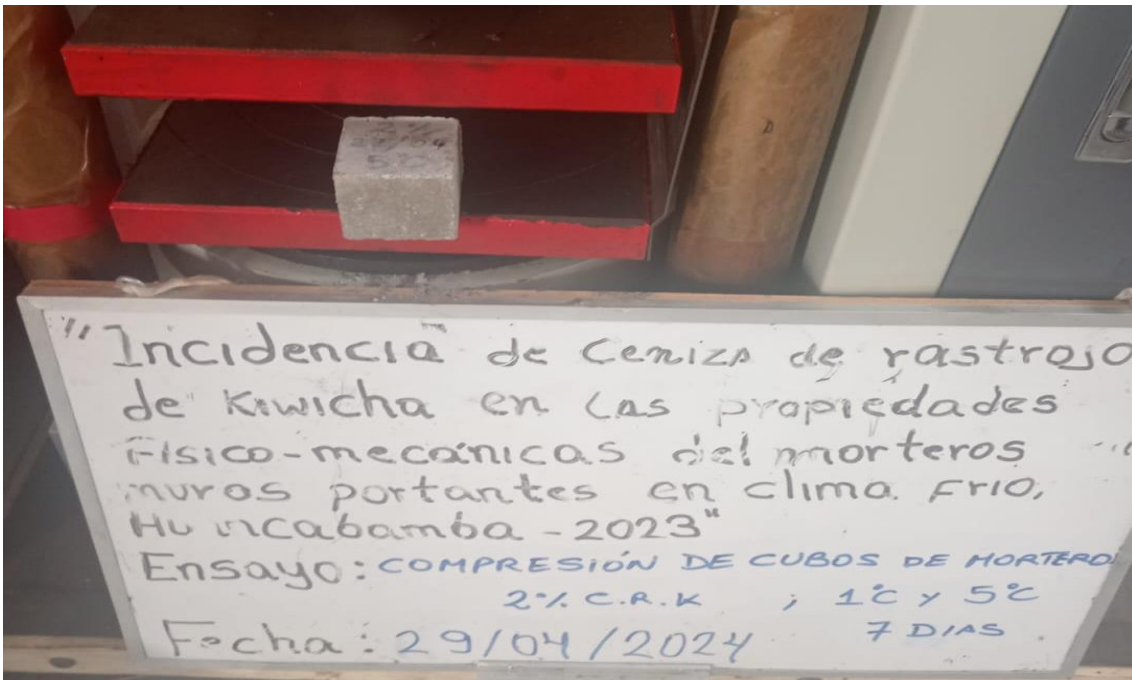 2%
5°C
"Incidencia de Ceniza de rastrojo
de Kiwicha en Las propiedades
Físico-mecánicas del morteros
muros portantes en clima Frio,
Huancabamba - 2023"
Ensayo: COMPRESIÓN DE CUBOS DE MORTERO
2% C.R.K ; 1°C y 5°C
7 DIAS
Fecha: 29/04/2024